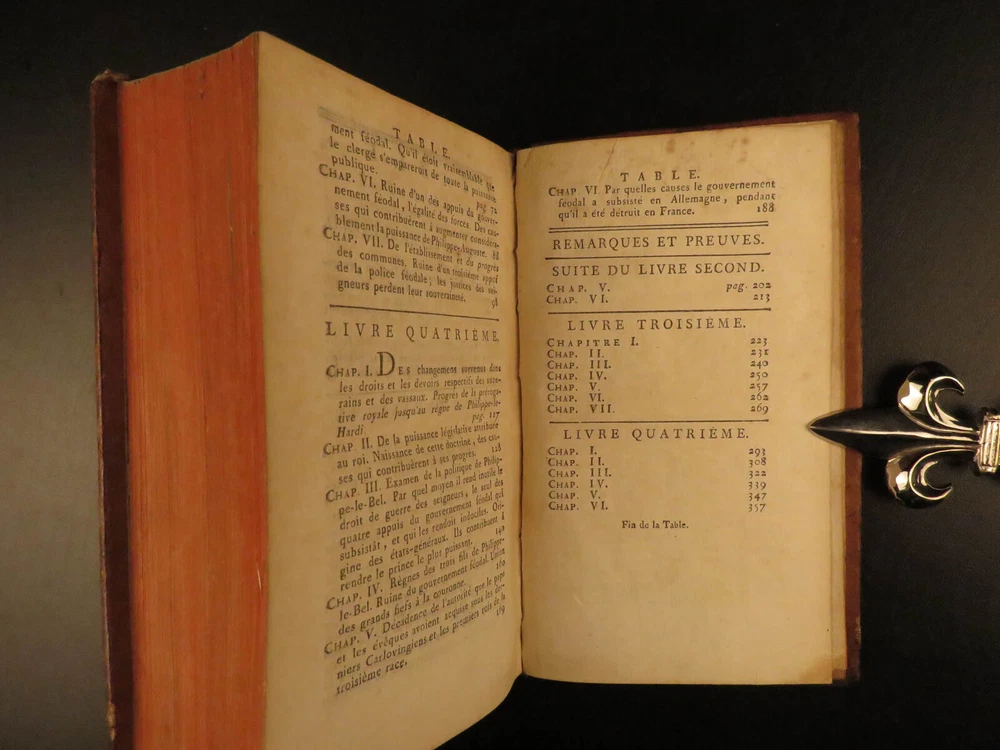 TABLE.
ment féodal. Qu'il étoit vraisemblable que
le clergé s'empareroit de toute la puissance
publique. pag. 72
CHAP. VI. Ruine d'un des appuis du gouver-
nement féodal, l'égalité des forces. Des cau-
ses qui contribuèrent à augmenter considéra-
blement la puissance de Philippe-Auguste. 88
CHAP. VII. De l'établissement et du progrès
des communes. Ruine d'un troisième appui
de la police féodale; les justices des sei-
gneurs perdent leur souveraineté. 98
LIVRE QUATRIÉME.
CHAP. I. DES changemens survenus dans
les droits et les devoirs respectifs des suze-
rains et des vassaux. Progrès de la préroga-
tive royale jusqu'au règne de Philippe-le-
Hardi. pag. 117
CHAP. II. De la puissance législative attribuée
au roi. Naissance de cette doctrine, des cau-
ses qui contribuèrent à ses progrès. 128
CHAP. III. Examen de la politique de Philip-
pe-le-Bel. Par quel moyen il rend inutile le
droit de guerre des seigneurs, le seul des
quatre appuis du gouvernement féodal qui
subsistât, et qui les rendoit indociles. Ori-
gine des états-généraux. Ils contribuent à
rendre le prince le plus puissant. 140
CHAP. IV. Règnes des trois fils de Philippe-
le-Bel. Ruine du gouvernement féodal. Union
des grands fiefs à la couronne. 160
CHAP. V. Décadence de l'autorité que le pape
et les évêques avoient acquise sous les der-
niers Carlovingiens et les premiers rois de la
troisième race. 169
TABLE.
CHAP. VI. Par quelles causes le gouvernement
féodal a subsisté en Allemagne, pendant
qu'il a été détruit en France. 188
REMARQUES ET PREUVES.
SUITE DU LIVRE SECOND.
CHAP. V. pag. 202
CHAP. VI. 213
LIVRE TROISIÉME.
CHAPITRE I. 223
CHAP. II. 231
CHAP. III. 240
CHAP. IV. 250
CHAP. V. 257
CHAP. VI. 262
CHAP. VII. 269
LIVRE QUATRIÉME.
CHAP. I. 293
CHAP. II. 308
CHAP. III. 322
CHAP. IV. 339
CHAP. V. 347
CHAP. VI. 357
Fin de la Table.